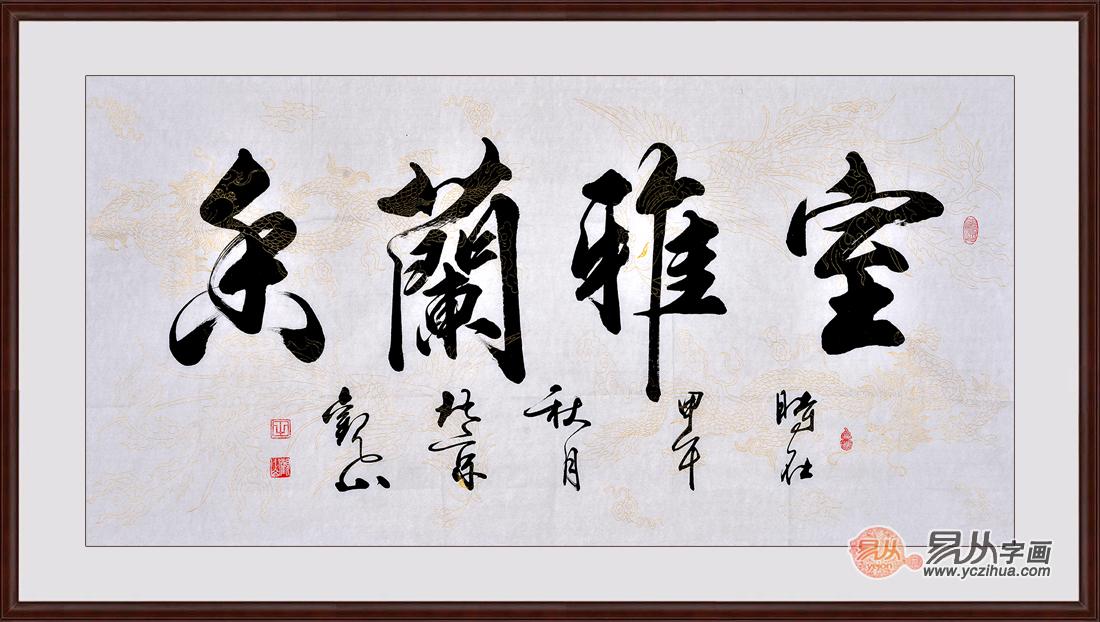 室雅蘭香
時在
甲午
秋月
北京
觀山
易从
易从字画
www.yczihua.com